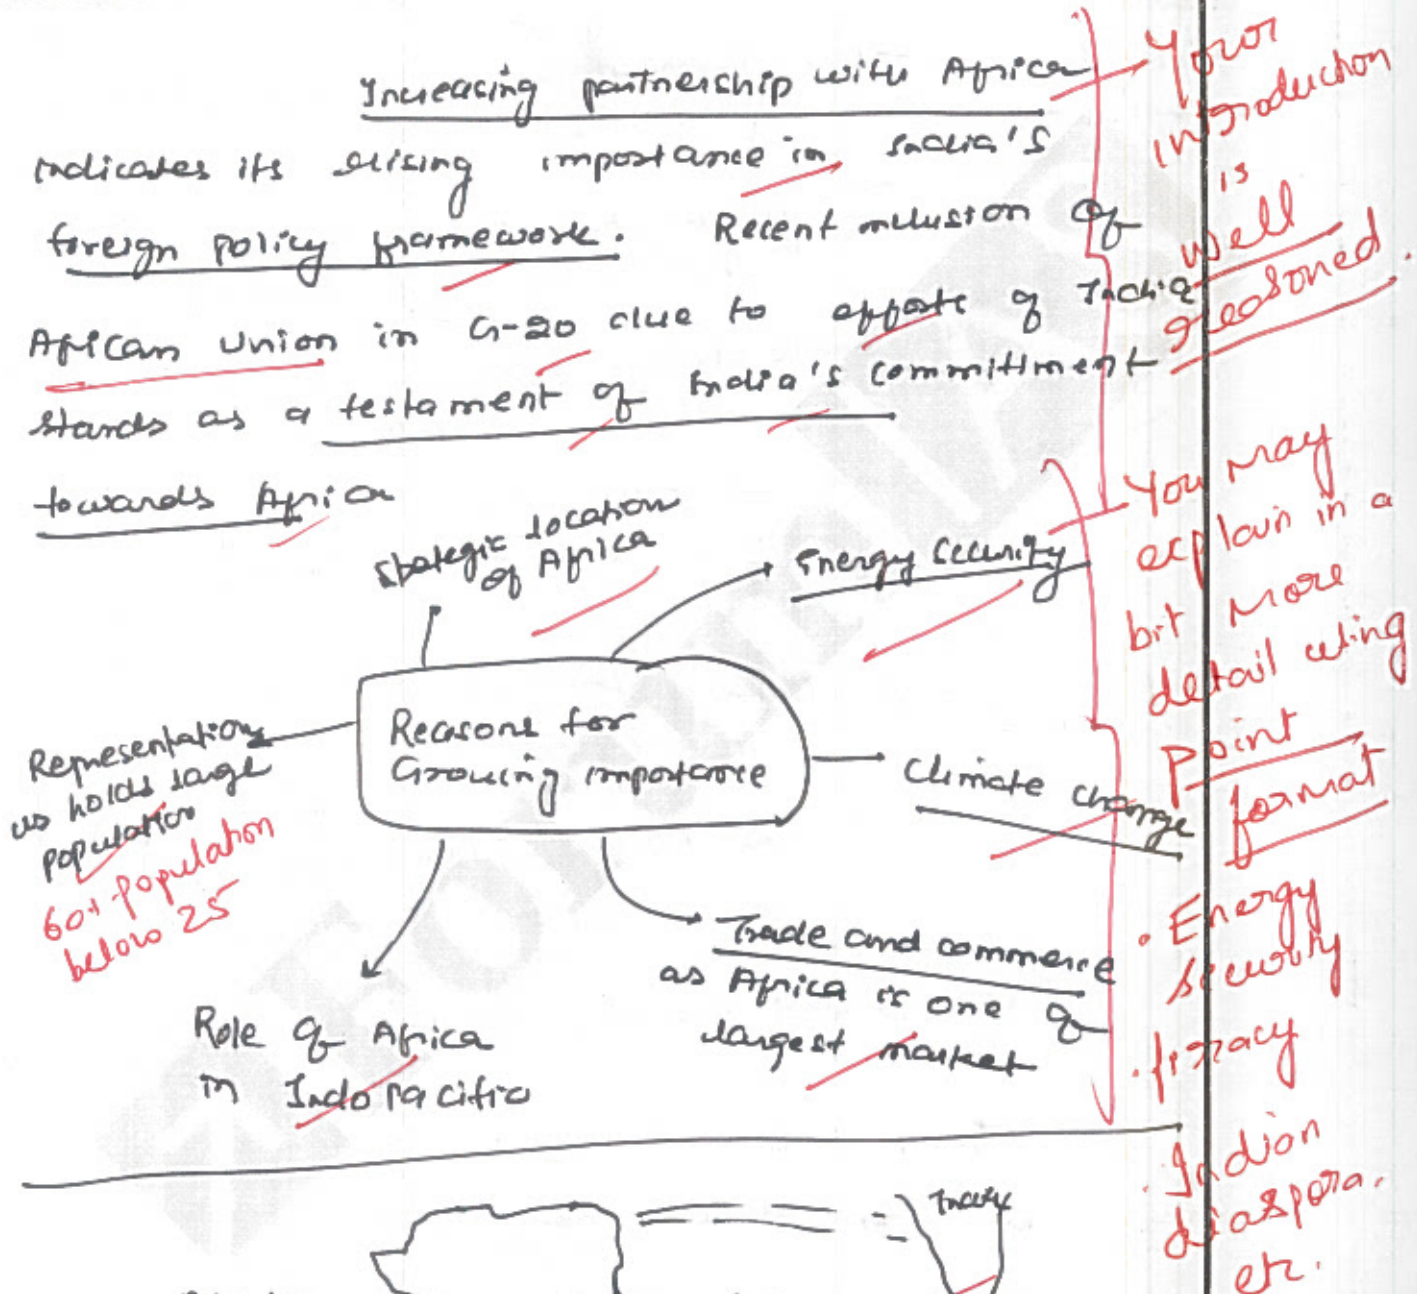 Increasing partnership with Africa
indicates its rising importance in India's
foreign policy framework. Recent inclusion of
African Union in G-20 due to efforts of India
stands as a testament of India's committment
towards Africa
Strategic location
of Africa
Energy Security
Reasons for
Growing importance
Representation
as holds large
population
60% population
below 25
Climate change
Trade and commerce
as Africa is one of
largest market
Role of Africa
in Indo Pacific
Your
introduction
is
well
reasoned.
You may
explain in a
bit more
detail using
Point
format
. Energy
security
. Piracy
. Indian
diaspora.
etc.
India